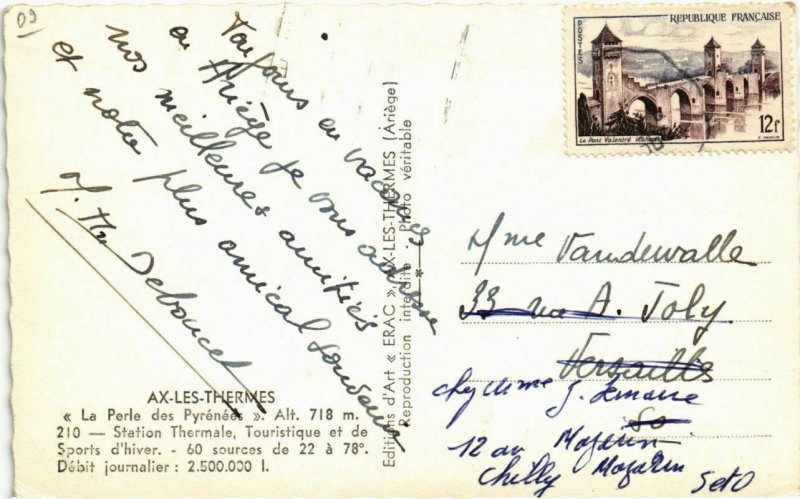 09
Toujours en vacances
en Ariège je vous adresse
nos meilleures amitiés
et notre plus amical souvenir
M. Th Deboucet
AX-LES-THERMES
« La Perle des Pyrénées ». Alt. 718 m.
210 — Station Thermale, Touristique et de
Sports d'hiver. - 60 sources de 22 à 78°.
Débit journalier : 2.500.000 l.
Editions d'Art « ERAC » AX-LES-THERMES (Ariège)
Reproduction interdite - Photo véritable
REPUBLIQUE FRANÇAISE
POSTES
Le Pont Valentré
12f
Mme Vandewalle
33 rue A. Joly
Versailles
So
12 av Mazarin
Chilly Mazarin
Set O